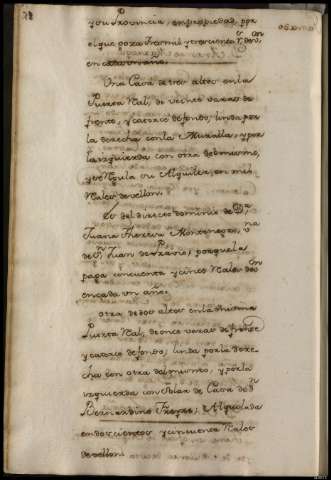 y su Provincia, en propiedad, por
el que goza tres mil y trescientos rs. de von.
en cada un año.
Una Casa de tres altos en la
Puerta Nal, de veinte varas de
frente, y catorce de fondo, linda por
la derecha con la Muralla, y por
la izquierda con otra del mismo,
y se Regula su Alquiler, en mil
Reales de vellon.
Es del directo dominio de Da.
Juana Theresa Montenegro, Va.
de Dn. Juan de, porque la
paga cinquenta y cinco Reales de von.
en cada un año.
Otra de dos altos en la misma
Puerta Nal, de once varas de frente
y catorce de fondo, linda por la dere-
cha con otra del mismo, y por la
izquierda con Solar de Casa de Dn.
Bernardino Freyre; Alquilada
en doscientos y cinquenta Reales
de vellon.